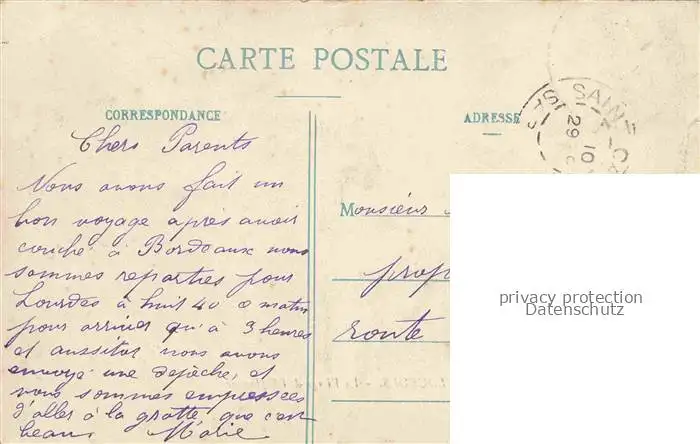 CARTE POSTALE
CORRESPONDANCE
ADRESSE
SAIN
29
10
Chers Parents
Nous avons fait un
bon voyage après avoir
couché à Bordeaux nous
sommes reparties pour
Lourdes à huit 40 matin
pour arriver qu'à 3 heures
et aussitot nous avons
envoyé une depèche, et
nous sommes empressées
d'aller à la grotte, que c'est
beau Marie
Monsieur
prop
route
privacy protection
Datenschutz